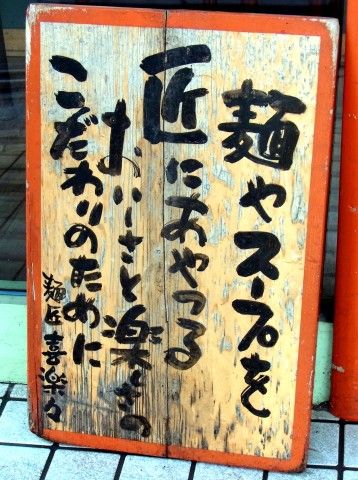 麺やスープを
匠にあやつる
おいしさと楽しさの
こだわりのために
麺匠 喜楽々